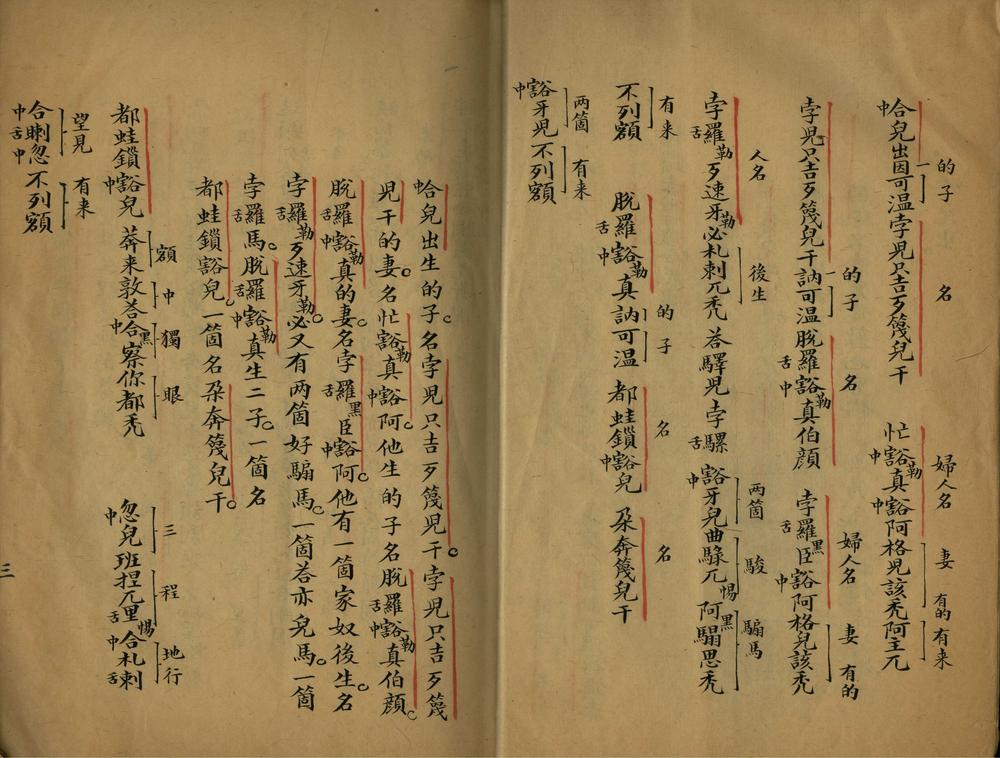 的子 名 婦人名 妻 有的 有来
中合兒出因可温孛兒只吉歹篾兒干 忙中豁勒真中豁阿格兒該禿阿主兀
的子 名 婦人名 妻 有的
孛兒只吉歹篾兒干訥可温脫舌羅中豁勒真伯顔 孛舌羅黑臣中豁阿格兒該禿
人名 後生 两箇 駿 騸馬
孛舌羅勒歹速牙勒必札剌兀禿 荅驛兒孛舌騾 中豁牙兒曲騄兀惕阿黑騸思禿
有来 的子 名 名
不列額 脫舌羅中豁勒真訥可温 都蛙鎖中豁兒 朶奔篾兒干
两箇 有来
中豁牙兒不列額
蛤兒出生的子名孛兒只吉歹篾兒干孛兒只吉歹篾
兒干的妻名忙中豁勒真中豁阿他生的子名脫舌羅中豁勒真伯顔
脫舌羅中豁勒真的妻名孛舌羅黑臣中豁阿他有一箇家奴後生名
孛舌羅勒歹速牙勒必又有两箇好騸馬一箇荅亦兒馬一箇
孛舌羅馬脫舌羅中豁勒真生二子一箇名
都蛙鎖豁兒一箇名朶奔篾兒干
都蛙鎖中豁兒 額 中 獨 眼 三 程 地行
莽来敦荅中合黑察你都禿 中忽兒班捏兀舌里惕中合札舌剌
望見 有来
中合舌喇中忽不列額
三